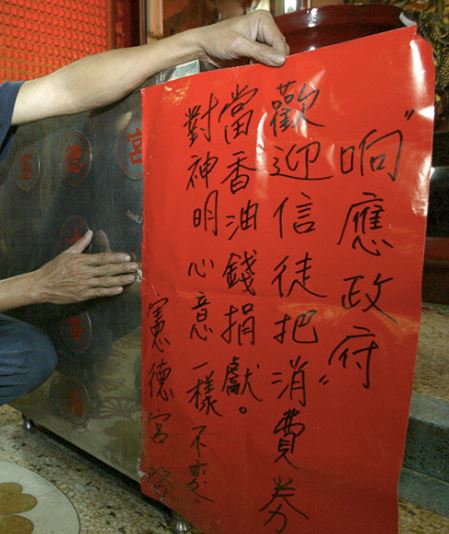 "响應政府"
歡迎信徒把消費券
當香油錢捐獻。
對神明心意一樣不变
憲德宮
宮
德
憲